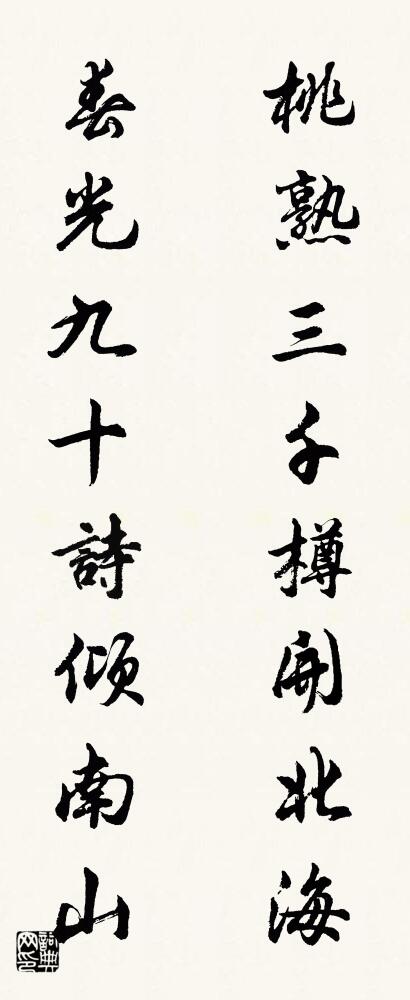 桃熟三千樽開北海
春光九十詩傾南山